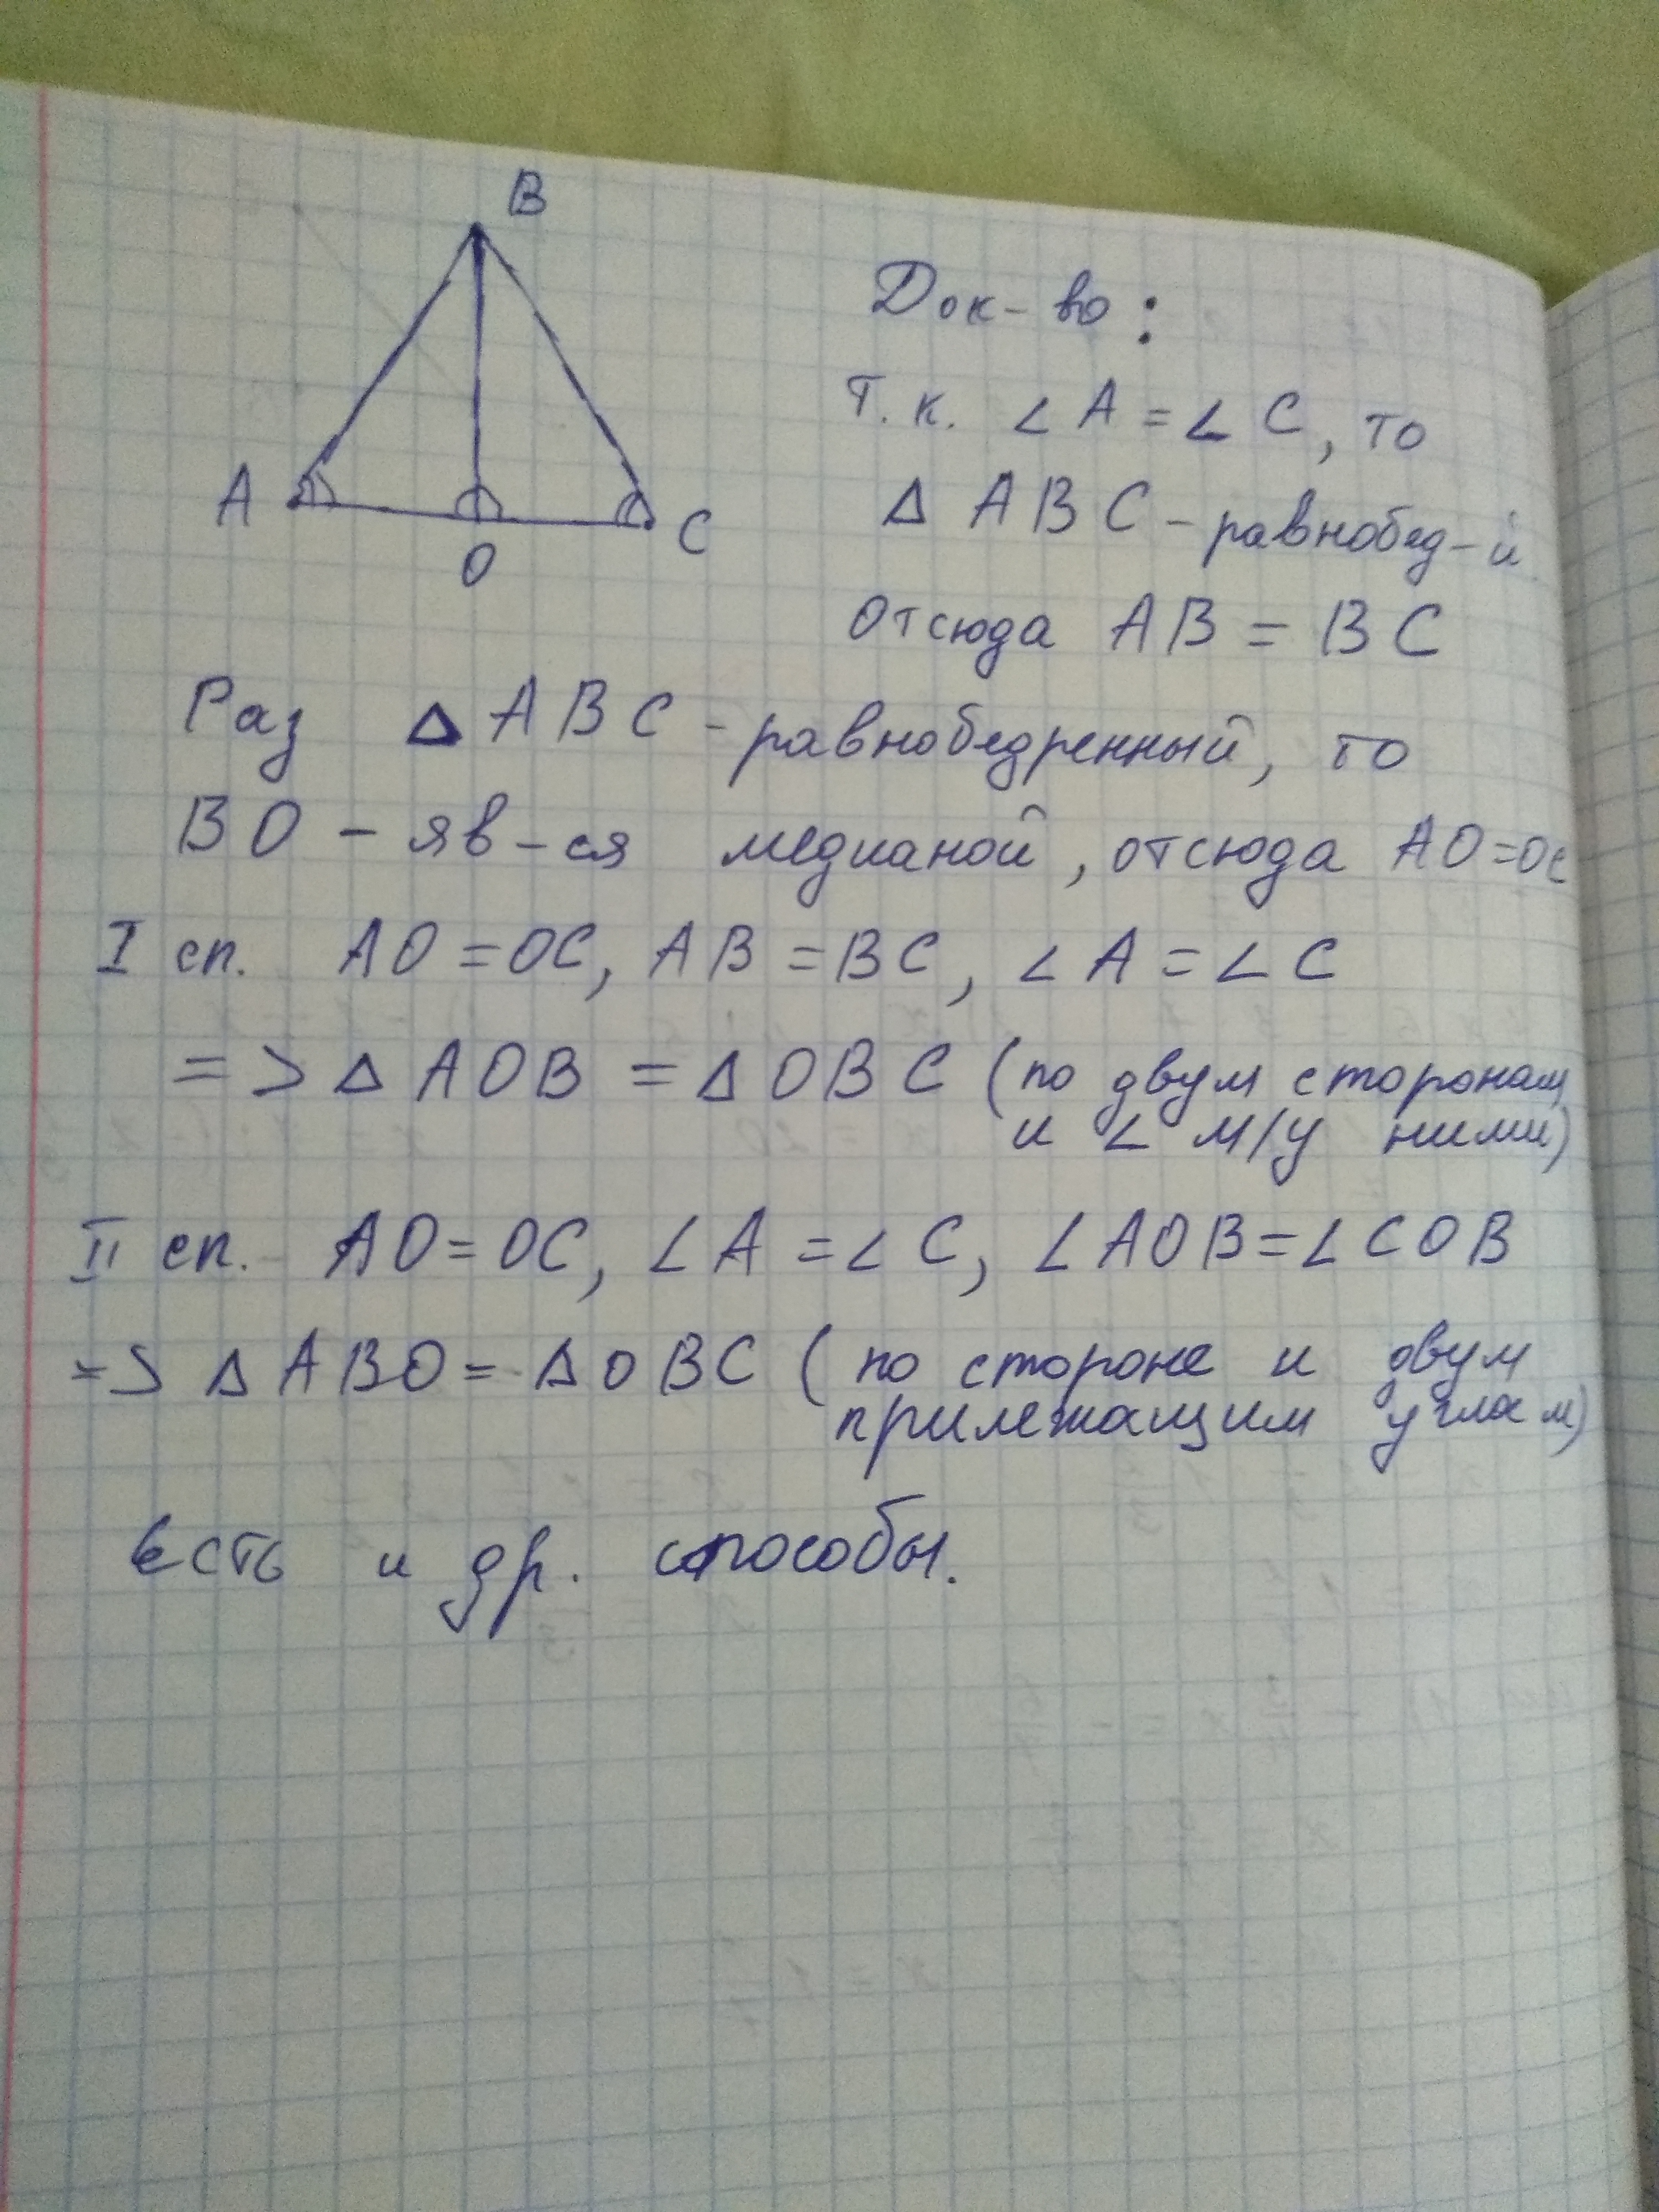 B
A
C
O
Док-во:
т.к. ∠A = ∠C, то
Δ ABC - равнобед-й
отсюда AB = BC
Раз Δ ABC - равнобедренный, то
BO - яв-ся медианой, отсюда AO=OC
I сп. AO = OC, AB = BC, ∠A = ∠C
=> Δ AOB = Δ OBC (по двум сторонам
и ∠ м/у ними)
II сп. AO = OC, ∠A = ∠C, ∠AOB = ∠COB
=> Δ ABO = Δ OBC (по стороне и двум
прилежащим углам)
Есть и др. способы.